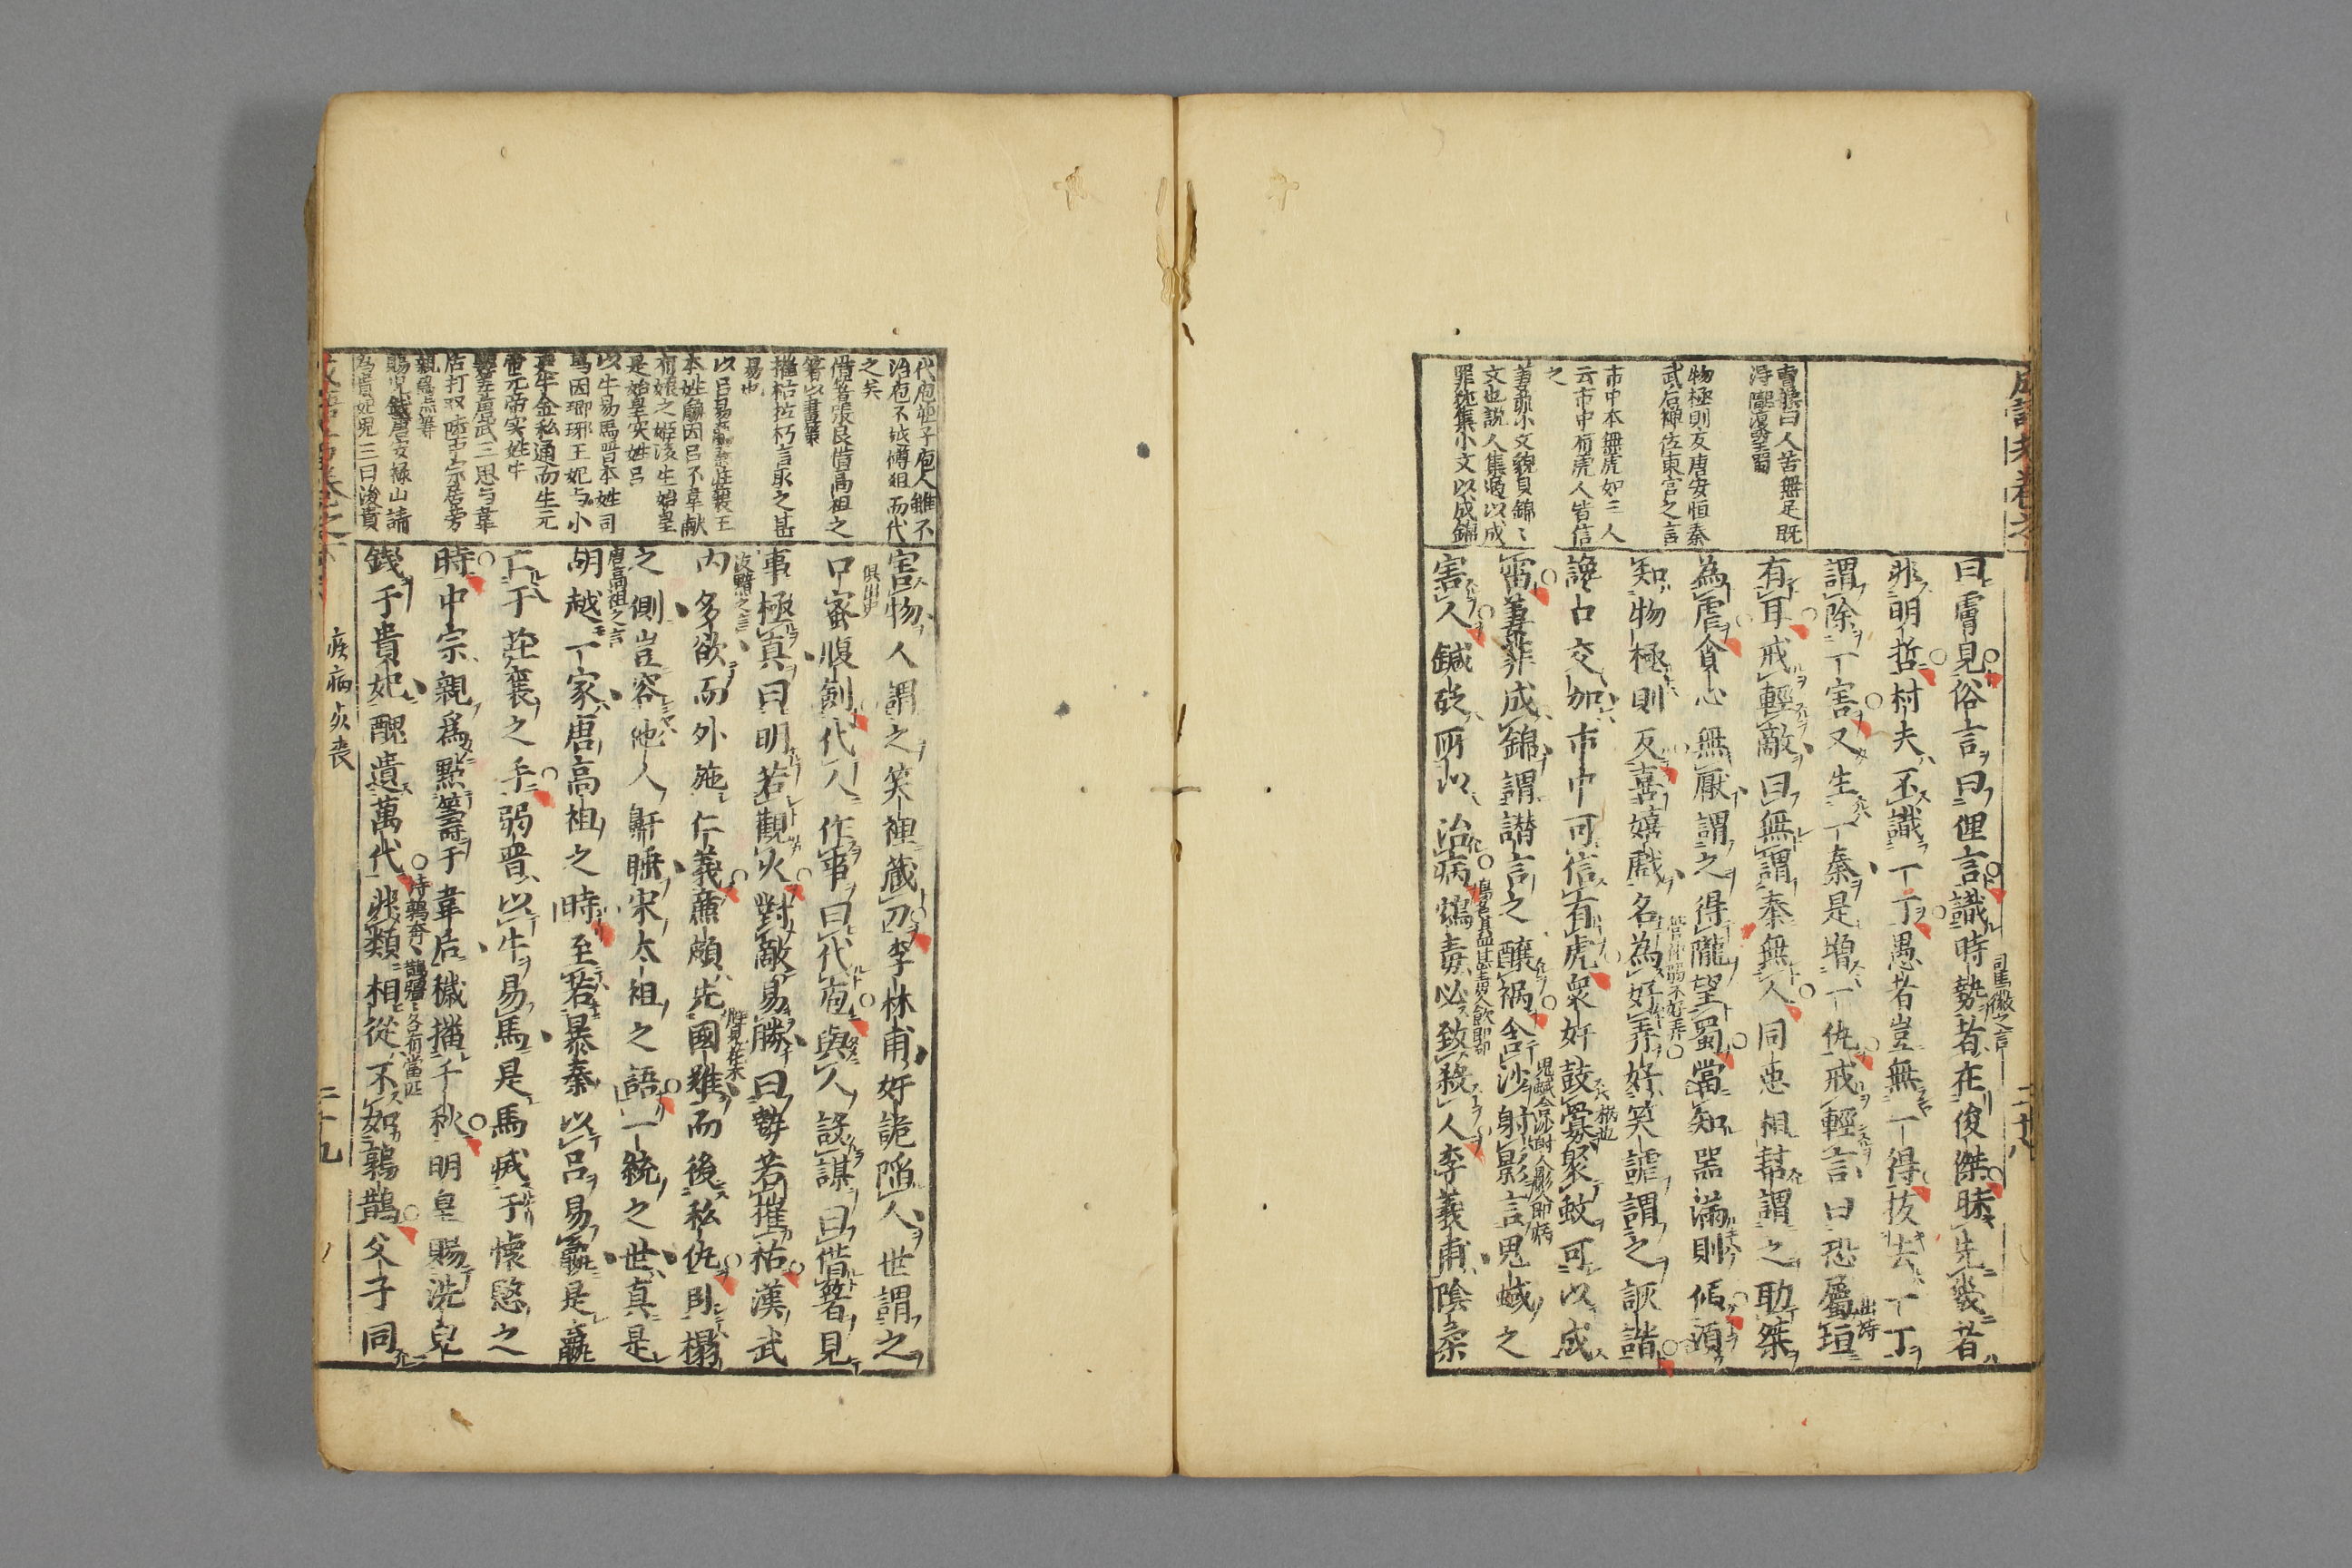 曹操曰人苦無足既
得隴復望蜀
物極則反唐安恒秦
武后禪位東宮之言
市中本無虎如三人
云市中有虎人皆信
之
萋菲小文貌貝錦〻
文也說人集過以成
罪猶集小文以成錦
曰膚見俗言曰俚言識時勢者在俊傑昧先幾者
司馬徽之言
非明哲村夫不識一丁愚者豈無一得拔去一丁
謂除一害又生一秦是增一仇戒輕言曰恐屬垣
出詩
有耳戒輕敵曰無謂秦無人同惡相幇謂之助桀
為虐貪心無厭謂之得隴望蜀當知器滿則傾須
知物極則反喜嬉戲名為好弄好笑謔謂之詼諧
讒口交加市中可信有虎衆奸鼓寡聚蚊可以成
雷萋菲成錦謂譖言之釀禍含沙射影言鬼蜮之
鬼蜮含沙射人影人卽病
害人鍼砭所以治病鴆毒必致殺人李義甫陰柔
二十八
代庖莊子庖人雖不
治庖不越樽俎而代
之矣
借箸張良借高祖之
箸以畫策
摧枯拉朽言取之甚
易也
以呂易嬴秦莊襄王
本姓嬴因呂不韋献
有娠之姬後生始皇
是始皇实姓呂
以牛易馬晋本姓司
馬因瑯琊王妃与小
吏牛金私通而生元
帝元帝实姓牛
點籌唐武三思与韋
后打双陸中宗居旁
親爲点筹
賜兒錢唐安禄山請
為貴妃児三日後貴
害物人謂之笑裡藏刀李林甫奸詭陷人世謂之
口蜜腹劍代人作事曰代庖與人設謀曰借箸見
事極真曰明若觀火對敵易勝曰勢若摧枯漢武
內多欲而外施仁義廉頗先國難而後私仇卧榻
汲黯之言
之側豈容他人鼾睡宋太祖之語一統之世真是
胡越一家唐高祖之時至若暴秦以呂易嬴是嬴
唐高祖之言
亡于莊襄之手弱晋以牛易馬是馬滅于懷愍之
時中宗親爲點籌于韋后穢播千秋明皇賜洗兒
錢于貴妃醜遺萬代非類相從不如鶉鵲父子同
詩鶉奔〻鵲彊〻各有當匹
疾病死喪
二十九